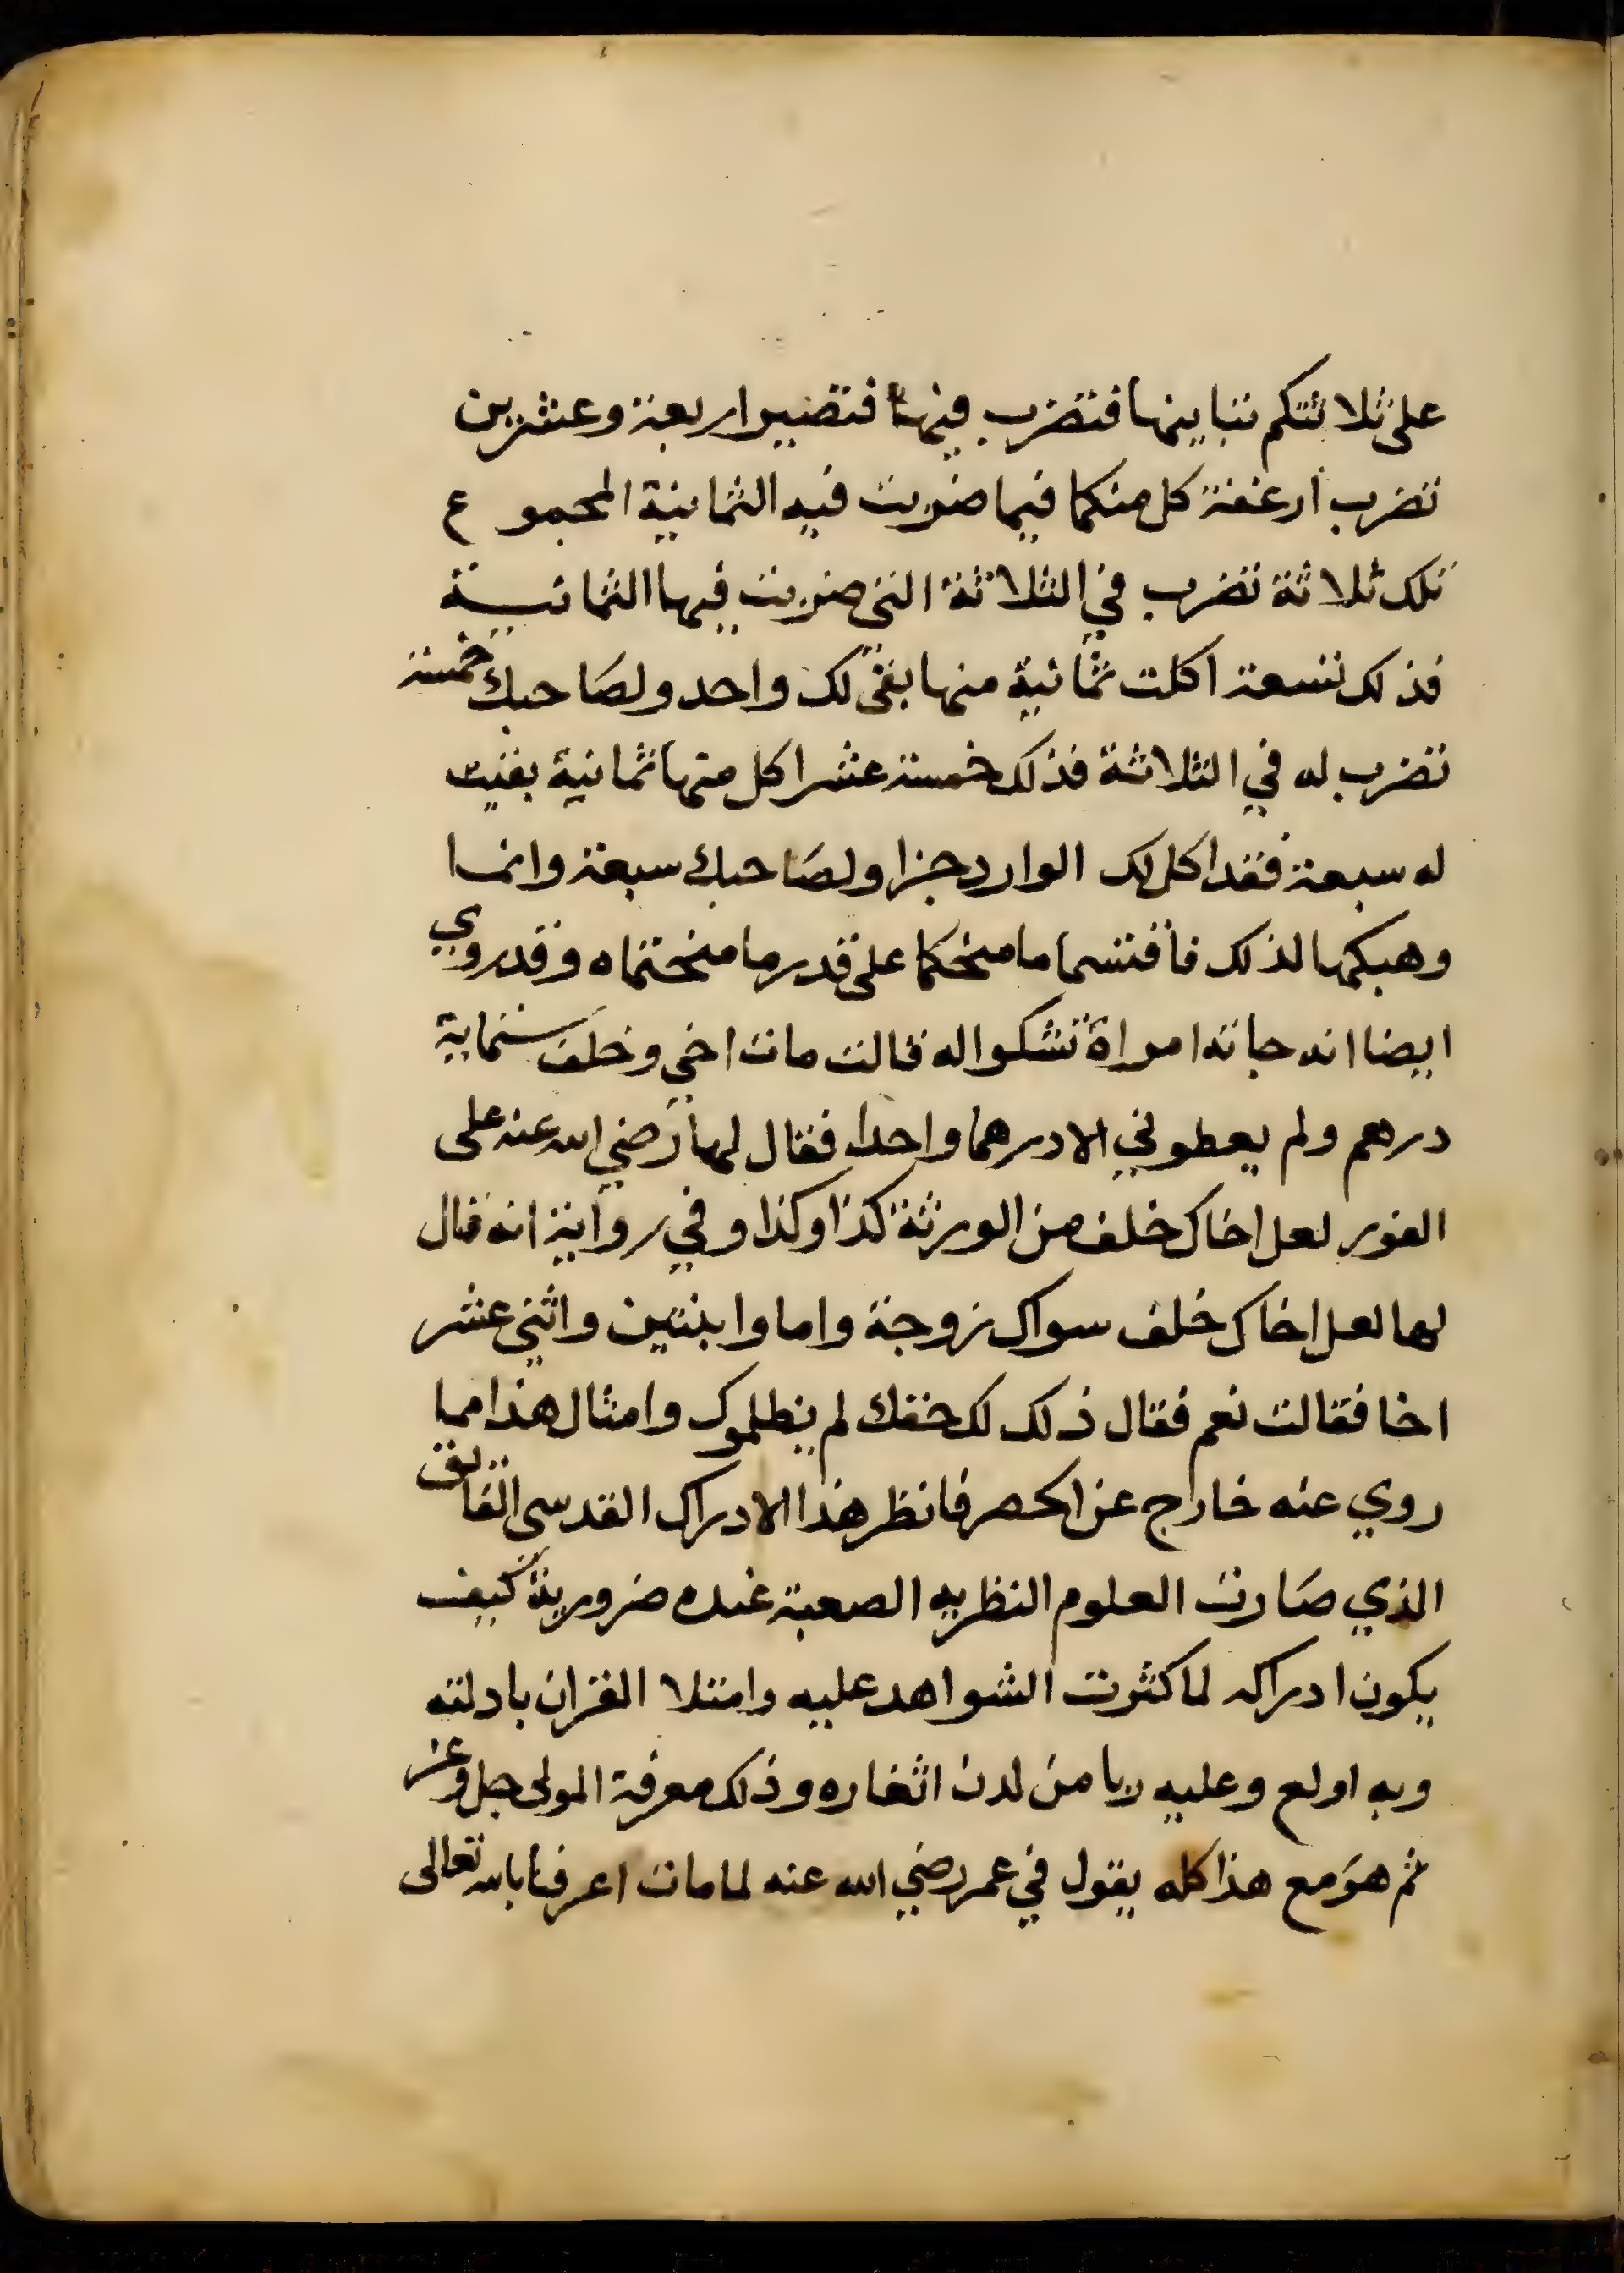 على ثلاثتكم تباينها فتضرب فيها فتصير اربعة وعشرين
تضرب ارغفة كل منكما فيما ضربت فيه الثمانية المجموع
تلك ثلاثة تضرب في الثلاثة التي ضربت فيها الثمانية
فذلك تسعة اكلت ثمانية منها بقي لك واحد ولصاحبك خمسة
تضرب له في الثلاثة فذلك خمسة عشر اكل منها ثمانية بقيت
له سبعة فقد اكل لك الوارد جزا ولصاحبك سبعة وانما
وهبكمها لذلك فاقتسما ما منحكما على قدر ما منحتماه وقد روي
ايضا انه جاته امراة تشكوا له قالت مات اخي وخلف ستماية
درهم ولم يعطوني الا درهما واحدا فقال لها رضي الله عنه على
الفور لعل اخاك خلف من الورثة كذا وكذا وفي رواية انه قال
لها لعل اخاك خلف سواك زوجة واما وابنتين واثني عشر
اخا فقالت نعم فقال ذلك لك حقك لم يظلموك وامثال هذا مما
روي عنه خارج عن الحصر فانظر هذا الادراك القدسي الفايق
الذي صارت العلوم النظريه الصعبة عنده ضرورية كيف
يكون ادراكه لما كثرت الشواهد عليه وامتلا القران بادلته
وبه اولع وعليه ربا من لدن اثغاره وذلك معرفة المولى جل وعز
ثم هو مع هذا كله يقول في عمر رضي الله عنه لما مات اعرفنا بالله تعالى